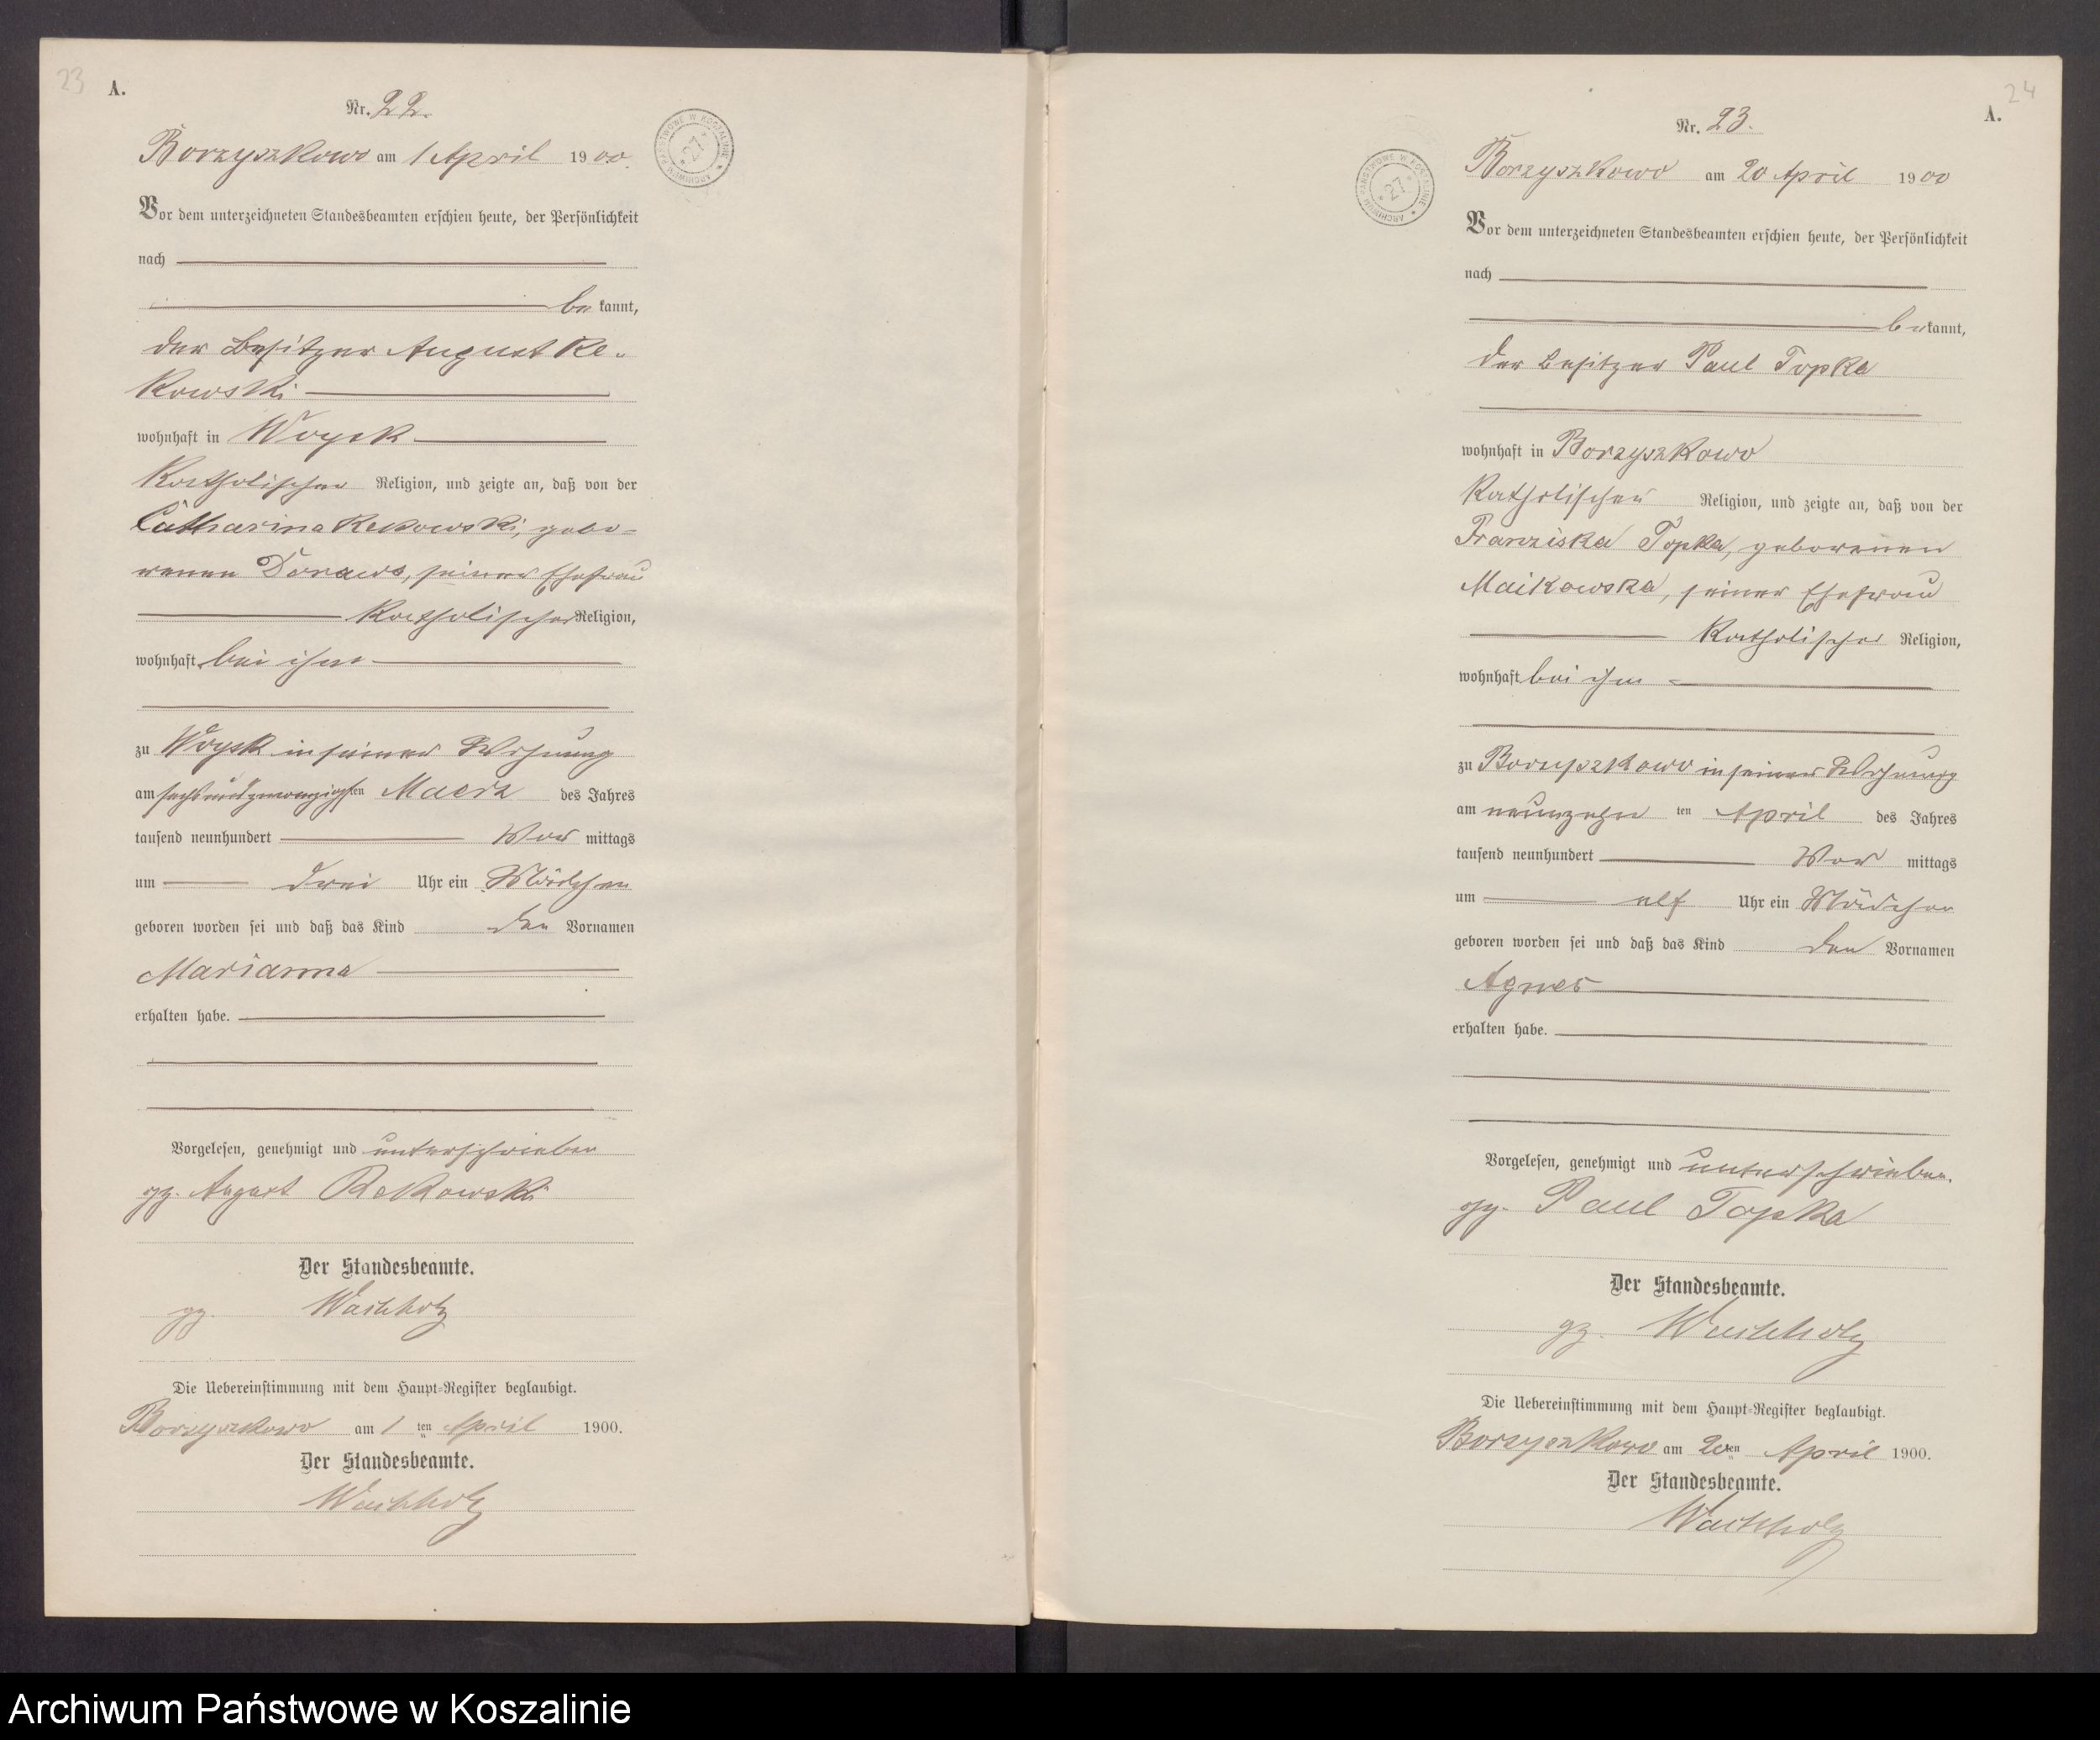 23
A.
Nr. 22.
Borzyszkowo am 1 April 1900.
Vor dem unterzeichneten Standesbeamten erschien heute, der Persönlichkeit
nach
be kannt,
der Besitzer August Re-
kowski
wohnhaft in Woysk
katholischer Religion, und zeigte an, daß von der
Catharina Rekowski, gebo-
renen, seiner Ehefrau
katholischer Religion,
wohnhaft bei ihm
zu Woysk in seiner Wohnung
am sechsundzwanzigsten Maerz des Jahres
tausend neunhundert Vor mittags
um drei Uhr ein Mädchen
geboren worden sei und daß das Kind den Vornamen
Marianna
erhalten habe.
Vorgelesen, genehmigt und unterschrieben
gz. August Rekowski
Der Standesbeamte.
gz. Wachholz
Die Uebereinstimmung mit dem Haupt-Register beglaubigt.
Borzyszkowo am 1 ten April 1900.
Der Standesbeamte.
Wachholz
ARCHIWUM PAŃSTWOWE W KOSZALINIE * 27 *
24
A.
Nr. 23.
Borzyszkowo am 20 April 1900
Vor dem unterzeichneten Standesbeamten erschien heute, der Persönlichkeit
nach
be kannt,
der Besitzer Paul Topka
wohnhaft in Borzyszkowo
katholischer Religion, und zeigte an, daß von der
Franziska Topka, geborenen
Maikowska, seiner Ehefrau
katholischer Religion,
wohnhaft bei ihm
zu Borzyszkowo in seiner Wohnung
am neunzehn ten April des Jahres
tausend neunhundert Vor mittags
um elf Uhr ein Mädchen
geboren worden sei und daß das Kind den Vornamen
Agnes
erhalten habe.
Vorgelesen, genehmigt und unterschrieben.
gz. Paul Topka
Der Standesbeamte.
gz. Wachholz
Die Uebereinstimmung mit dem Haupt-Register beglaubigt.
Borzyszkowo am 20ten April 1900.
Der Standesbeamte.
Wachholz
ARCHIWUM PAŃSTWOWE W KOSZALINIE * 27 *
Archiwum Państwowe w Koszalinie